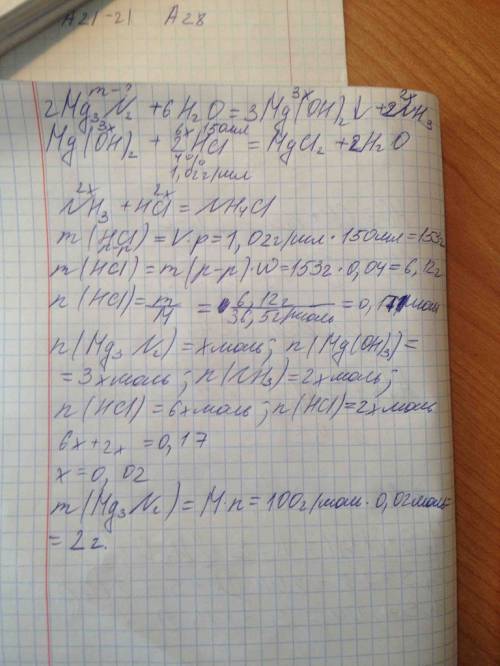 A21-21 A28
m-?
2Mg₃N₂ + 6H₂O = 3Mg(OH)₂↓ + 2NH₃
3x 2x
3x 6x 150мл
Mg(OH)₂ + 2HCl = MgCl₂ + 2H₂O
4%
1,02г/мл
2x 2x
NH₃ + HCl = NH₄Cl
m(HCl) = V·p = 1,02г/мл · 150мл = 153г
р-р
m(HCl) = m(р-р)·W = 153г · 0,04 = 6,12г
n(HCl) = m/M = 6,12г/36,5г/моль = 0,17 моль
n(Mg₃N₂) = xмоль; n(Mg(OH)₂) =
= 3xмоль; n(NH₃) = 2xмоль;
n(HCl) = 6xмоль; n(HCl) = 2xмоль
6x + 2x = 0,17
x = 0,02
m(Mg₃N₂) = M·n = 100г/моль · 0,02моль =
= 2г.